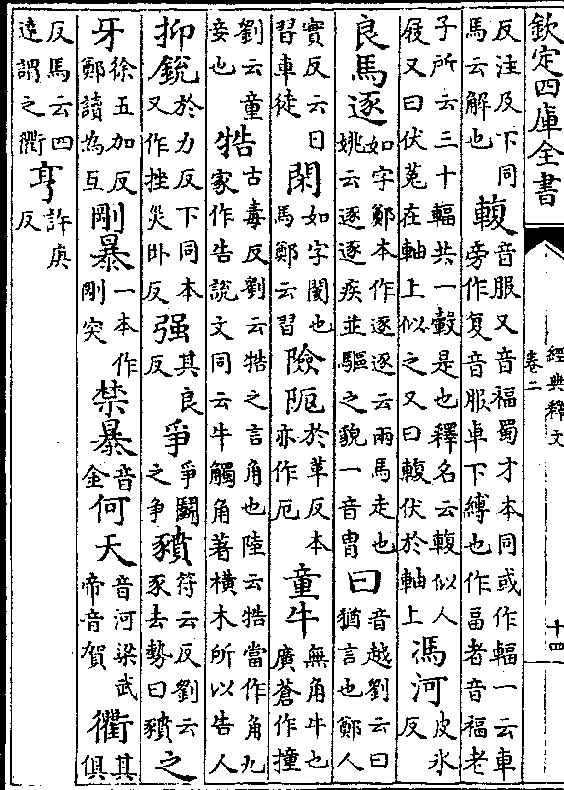 欽定四庫全書
經典釋文
卷二
十四
反注及下同馬云解也輹音服又音福蜀才本同或作輻一云車旁作复音服車下縛也作畐者音福老
子所云三十輻共一轂是也釋名云輹似人屐又曰伏菟在軸上似之又曰輹伏於軸上馮河皮氷反
良馬逐如字鄭本作逐逐云兩馬走也姚云逐逐疾並驅之貌一音胄曰音越劉云曰猶言也鄭人
實反云日習車徒閑如字閡也馬鄭云習險阨於革反本亦作厄童牛無角牛也廣蒼作撞
劉云童妾也牿古毒反劉云牿之言角也陸云牿當作角九家作告說文同云牛觸角著橫木所以告人
抑銳於力反下同本又作挫災卧反强其良反爭爭鬭之爭豶符云反劉云豕去勢曰豶之
牙徐五加反鄭讀為互剛暴一本作剛突禁暴音金何天音河梁武帝音賀衢其俱
反馬云四達謂之衢亨許庚反